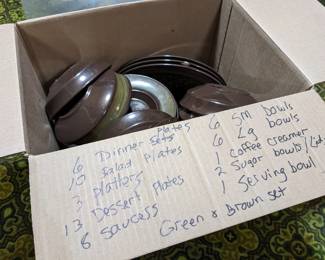 6 Dinner Plates
sets
10 Salad plates
3 platters
13 Dessert plates
8 saucers
6 sm bowls
6 Lg bowls
1 coffee creamer
2 Sugar bowls/Lid
1 Serving bowl
Green & Brown set